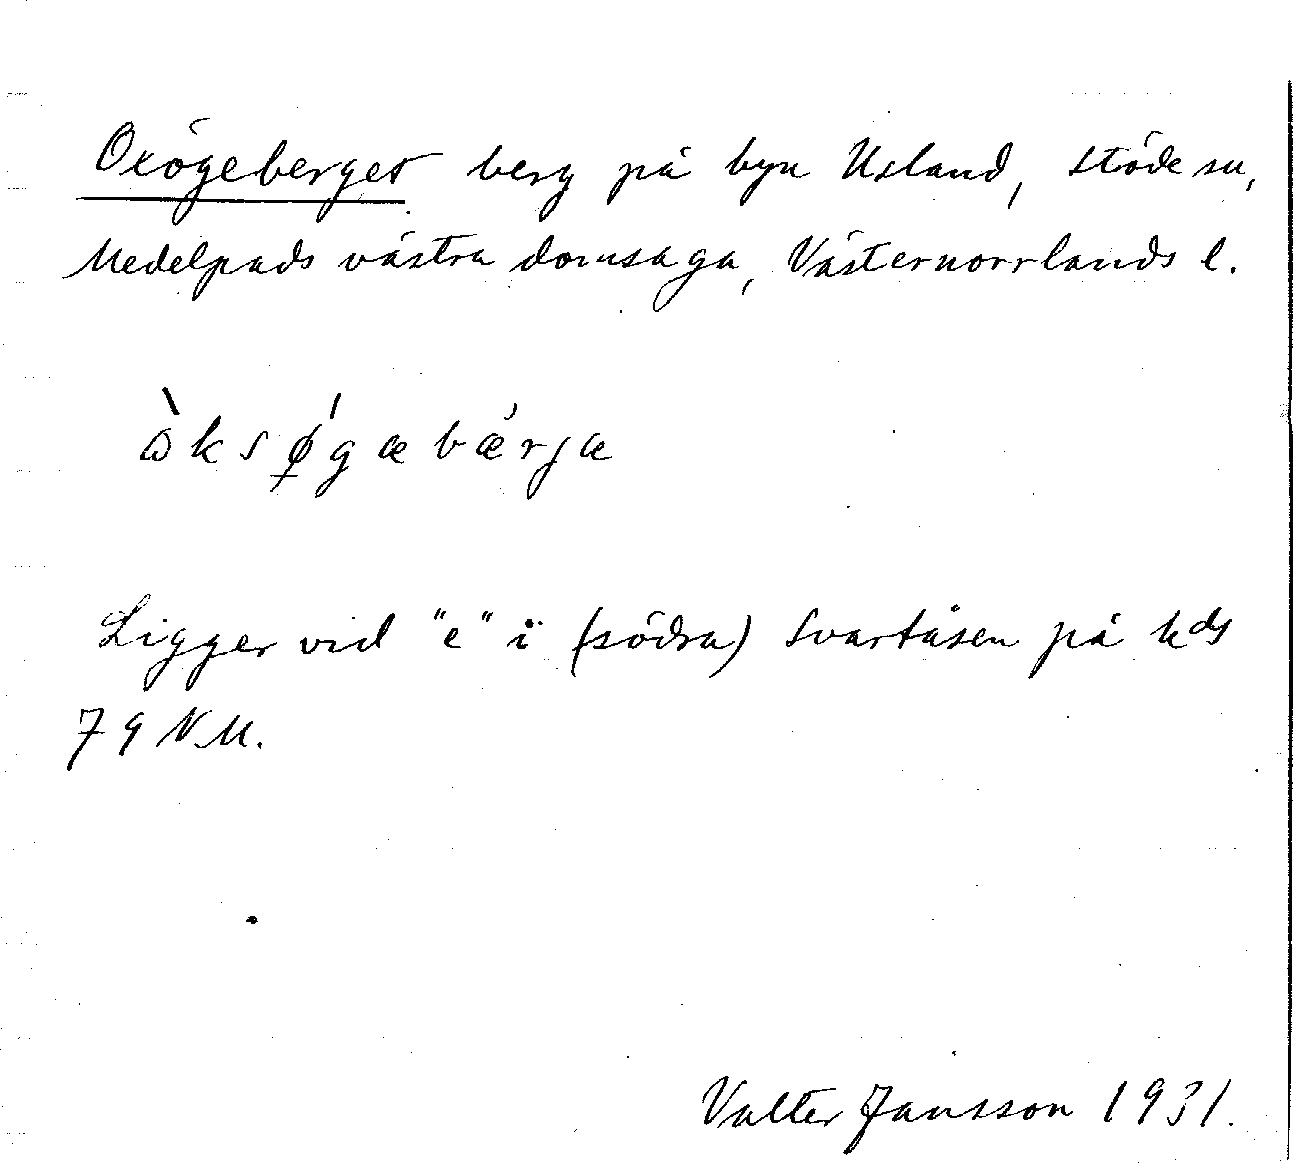 Oxögeberget berg på byn Usland, Stöde sn,
Medelpads västra domsaga, Västernorrlands l.
òksø̀gæbærjæ
Ligger vid "e" i (södra) Svartåsen på kds
79 N.M.
Valter Jansson 1931.